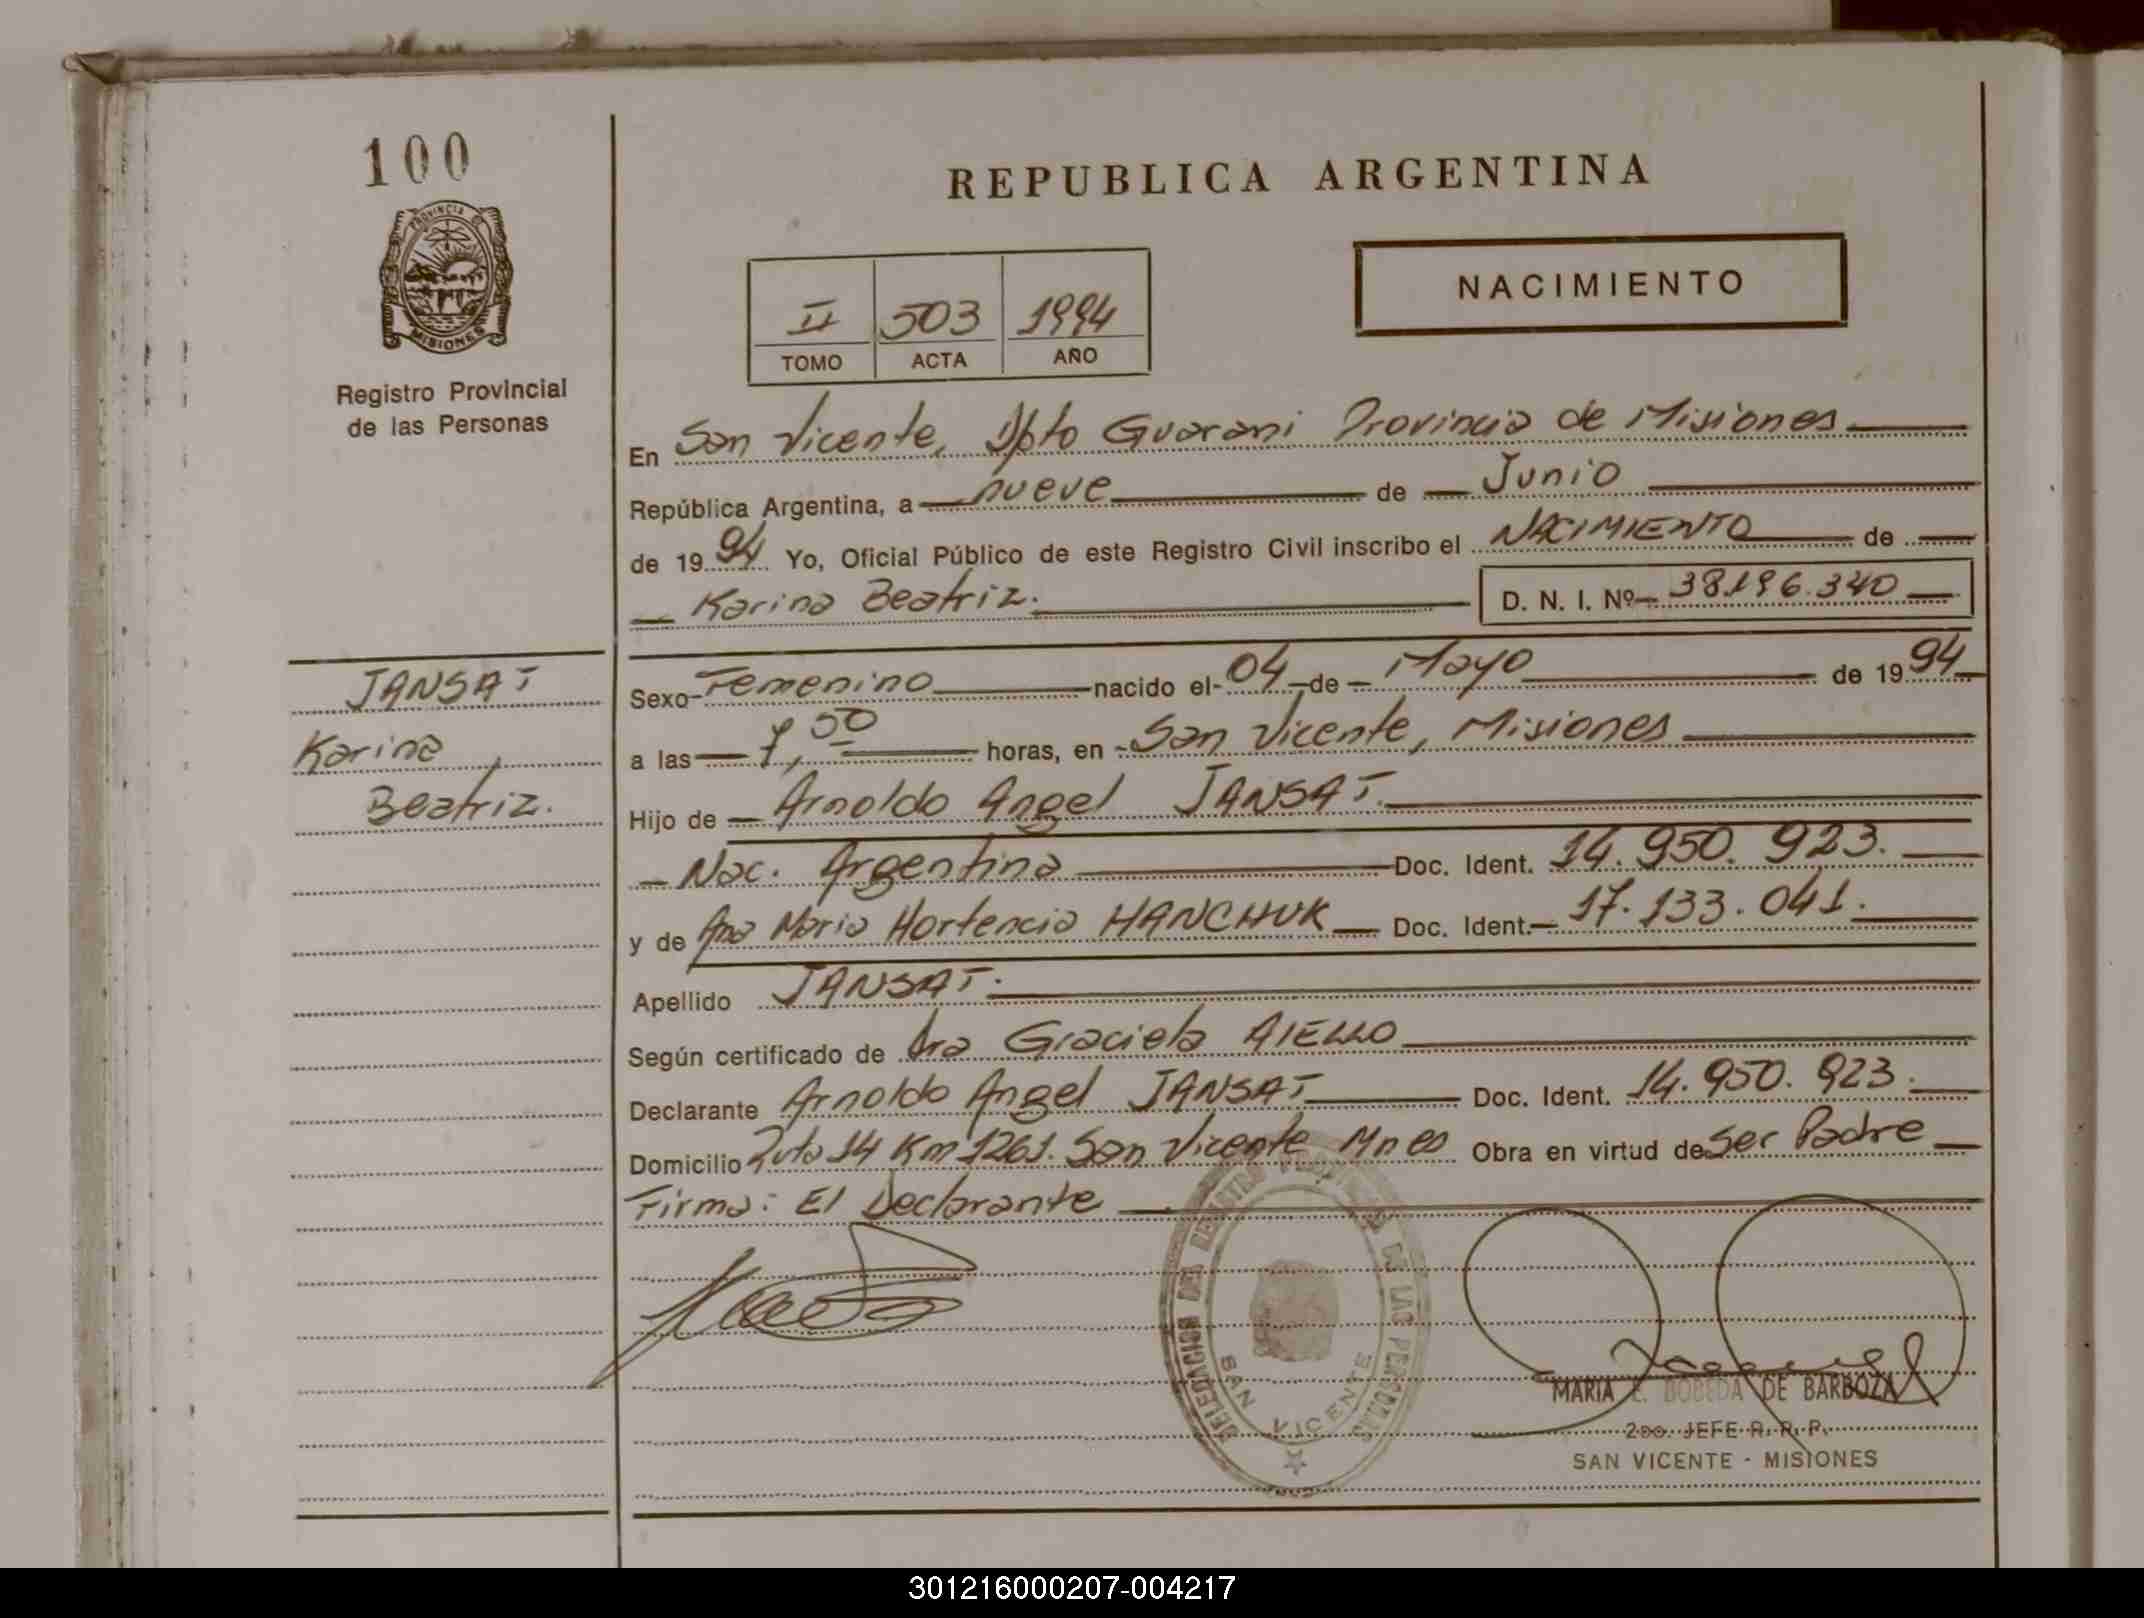 100
PROVINCIA DE
MISIONES
Registro Provincial
de las Personas
REPUBLICA ARGENTINA
NACIMIENTO
II 503 1994
TOMO ACTA AÑO
En San Vicente, Dpto Guarani Provincia de Misiones
República Argentina, a nueve de Junio
de 1994 Yo, Oficial Público de este Registro Civil inscribo el NACIMIENTO de
Karina Beatriz. D. N. I. Nº 38.196.340
JANSAT
Karina
Beatriz.
Sexo Femenino nacido el 04 de Mayo de 1994
a las 7,50 horas, en San Vicente, Misiones
Hijo de Arnoldo Angel JANSAT.
Nac. Argentina Doc. Ident. 14.950.923.
y de Ana Maria Hortencia HANCHUK Doc. Ident. 17.133.041.
Apellido JANSAT.
Según certificado de Dra Graciela AIELLO
Declarante Arnoldo Angel JANSAT Doc. Ident. 14.950.923.
Domicilio Ruta 14 Km 1261. San Vicente Mnes Obra en virtud de Ser Padre
Firma: El Declarante
DELEGACION DEL REGISTRO PROVINCIAL DE LAS PERSONAS
SAN VICENTE
MARIA E. BOBEDA DE BARBOZA
2do. JEFE R. R. P.
SAN VICENTE - MISIONES
301216000207-004217